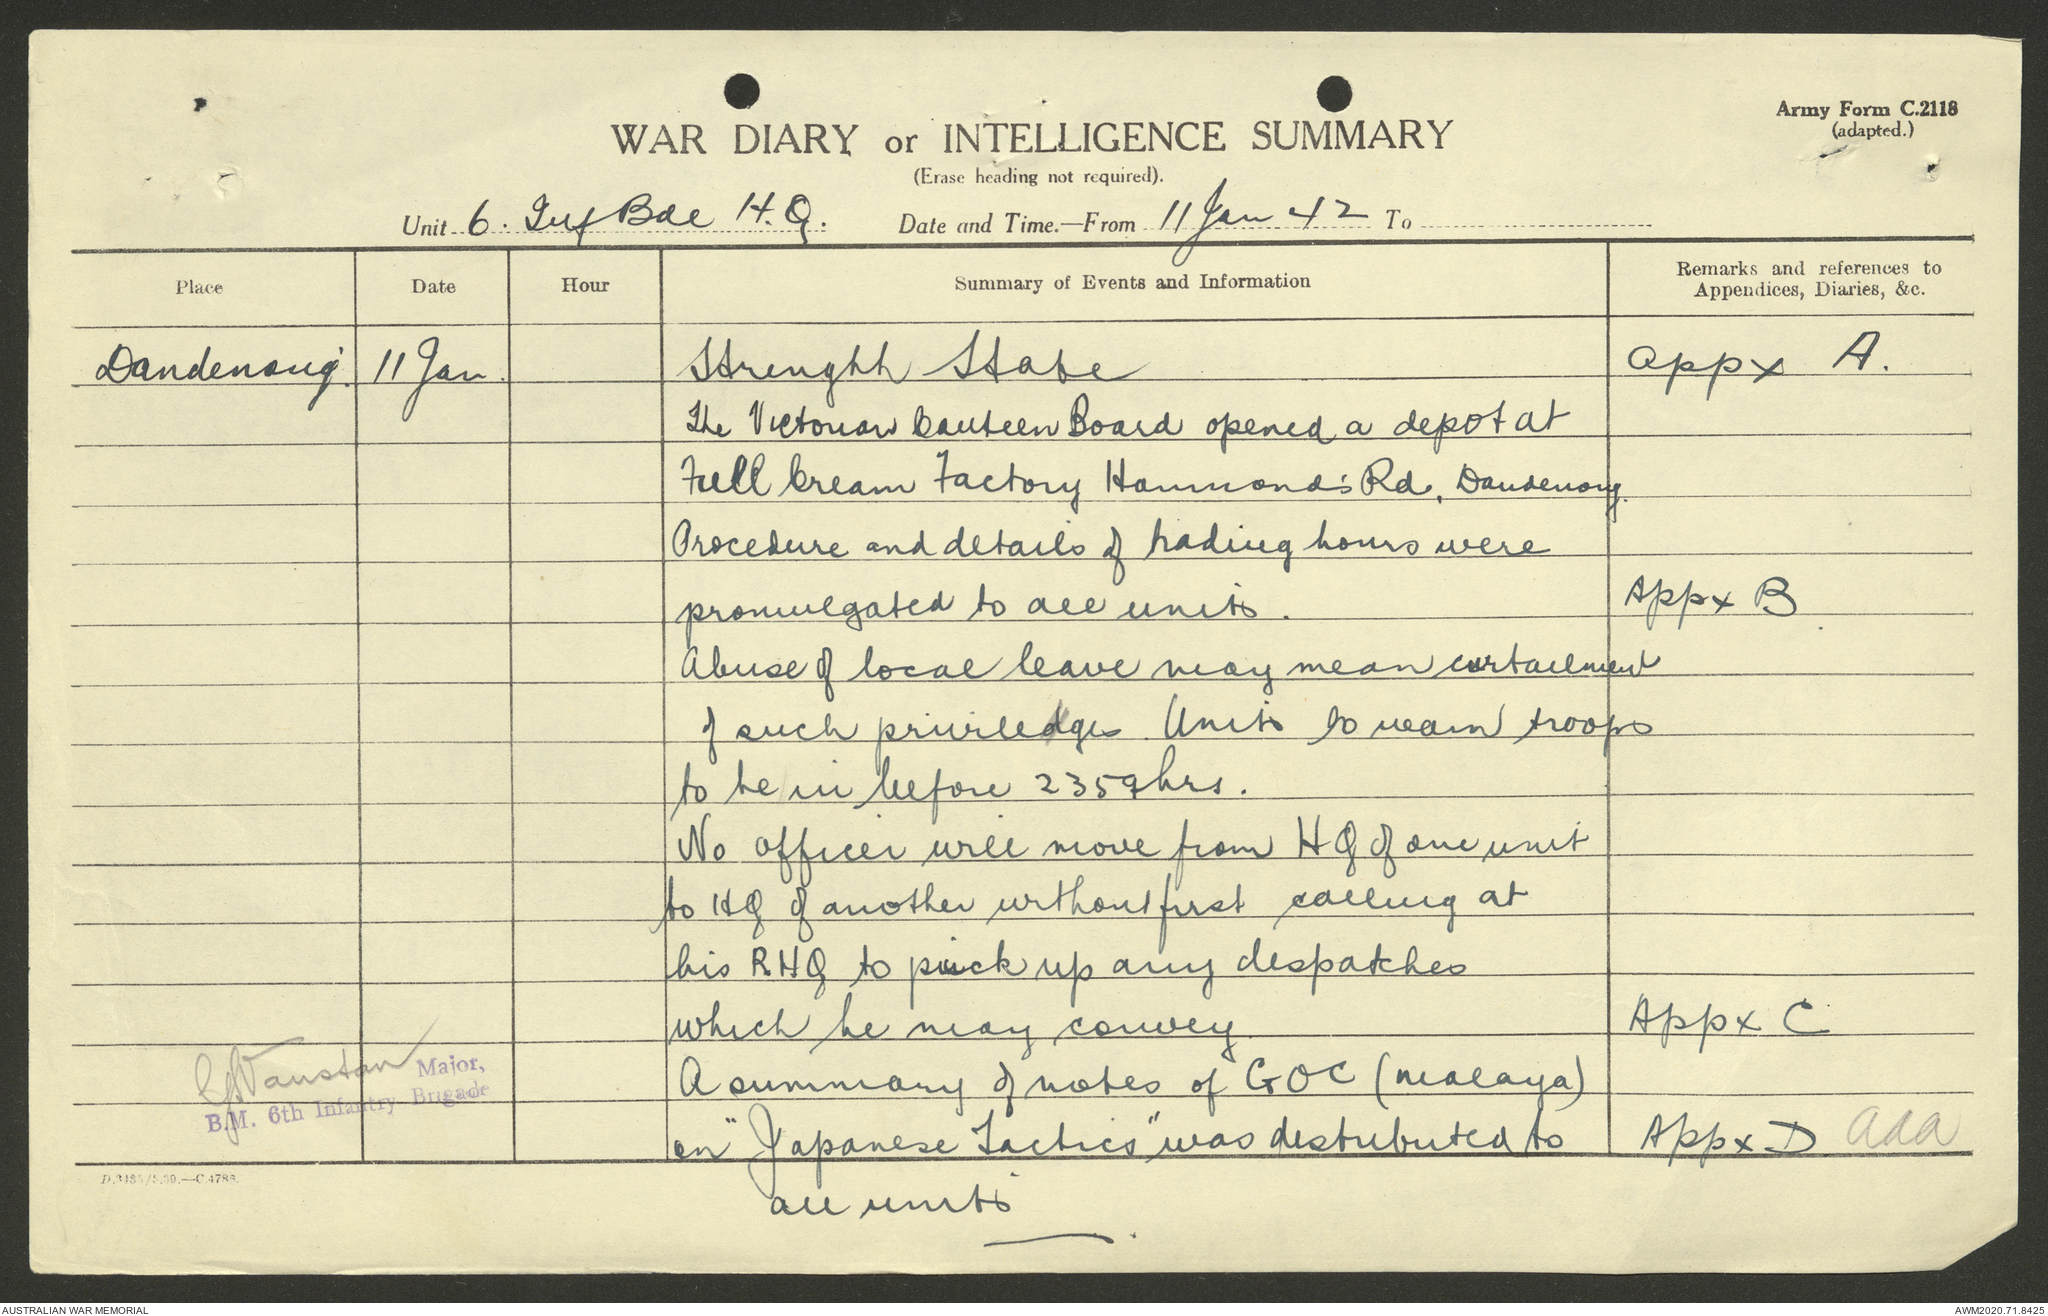 Army Form C.2118
(adapted.)
WAR DIARY or INTELLIGENCE SUMMARY
(Erase heading not required).
Unit 6. Inf Bde H.Q. Date and Time.—From 11 Jan 42 To
Place Date Hour Summary of Events and Information Remarks and references to Appendices, Diaries, &c.
Dandenong. 11 Jan. Strenghh State Appx A.
The Victorian Canteen Board opened a depot at
Full Cream Factory Hammond's Rd, Dandenong.
Procedure and details of trading hours were
promulgated to all units. Appx B
Abuse of local leave may mean curtailment
of such priviledges. Units to warn troops
to be in before 2359hrs.
No officer will move from HQ of one unit
to HQ of another without first calling at
his RHQ to pick up any despatches
which he may convey Appx C
A summary of notes of GOC (Malaya)
on "Japanese Tactics" was distributed to Appx D
all units
Major,
B.M. 6th Infantry Brigade
D.3485/5.39.—C.4788.
AUSTRALIAN WAR MEMORIAL
AWM2020.71.8425